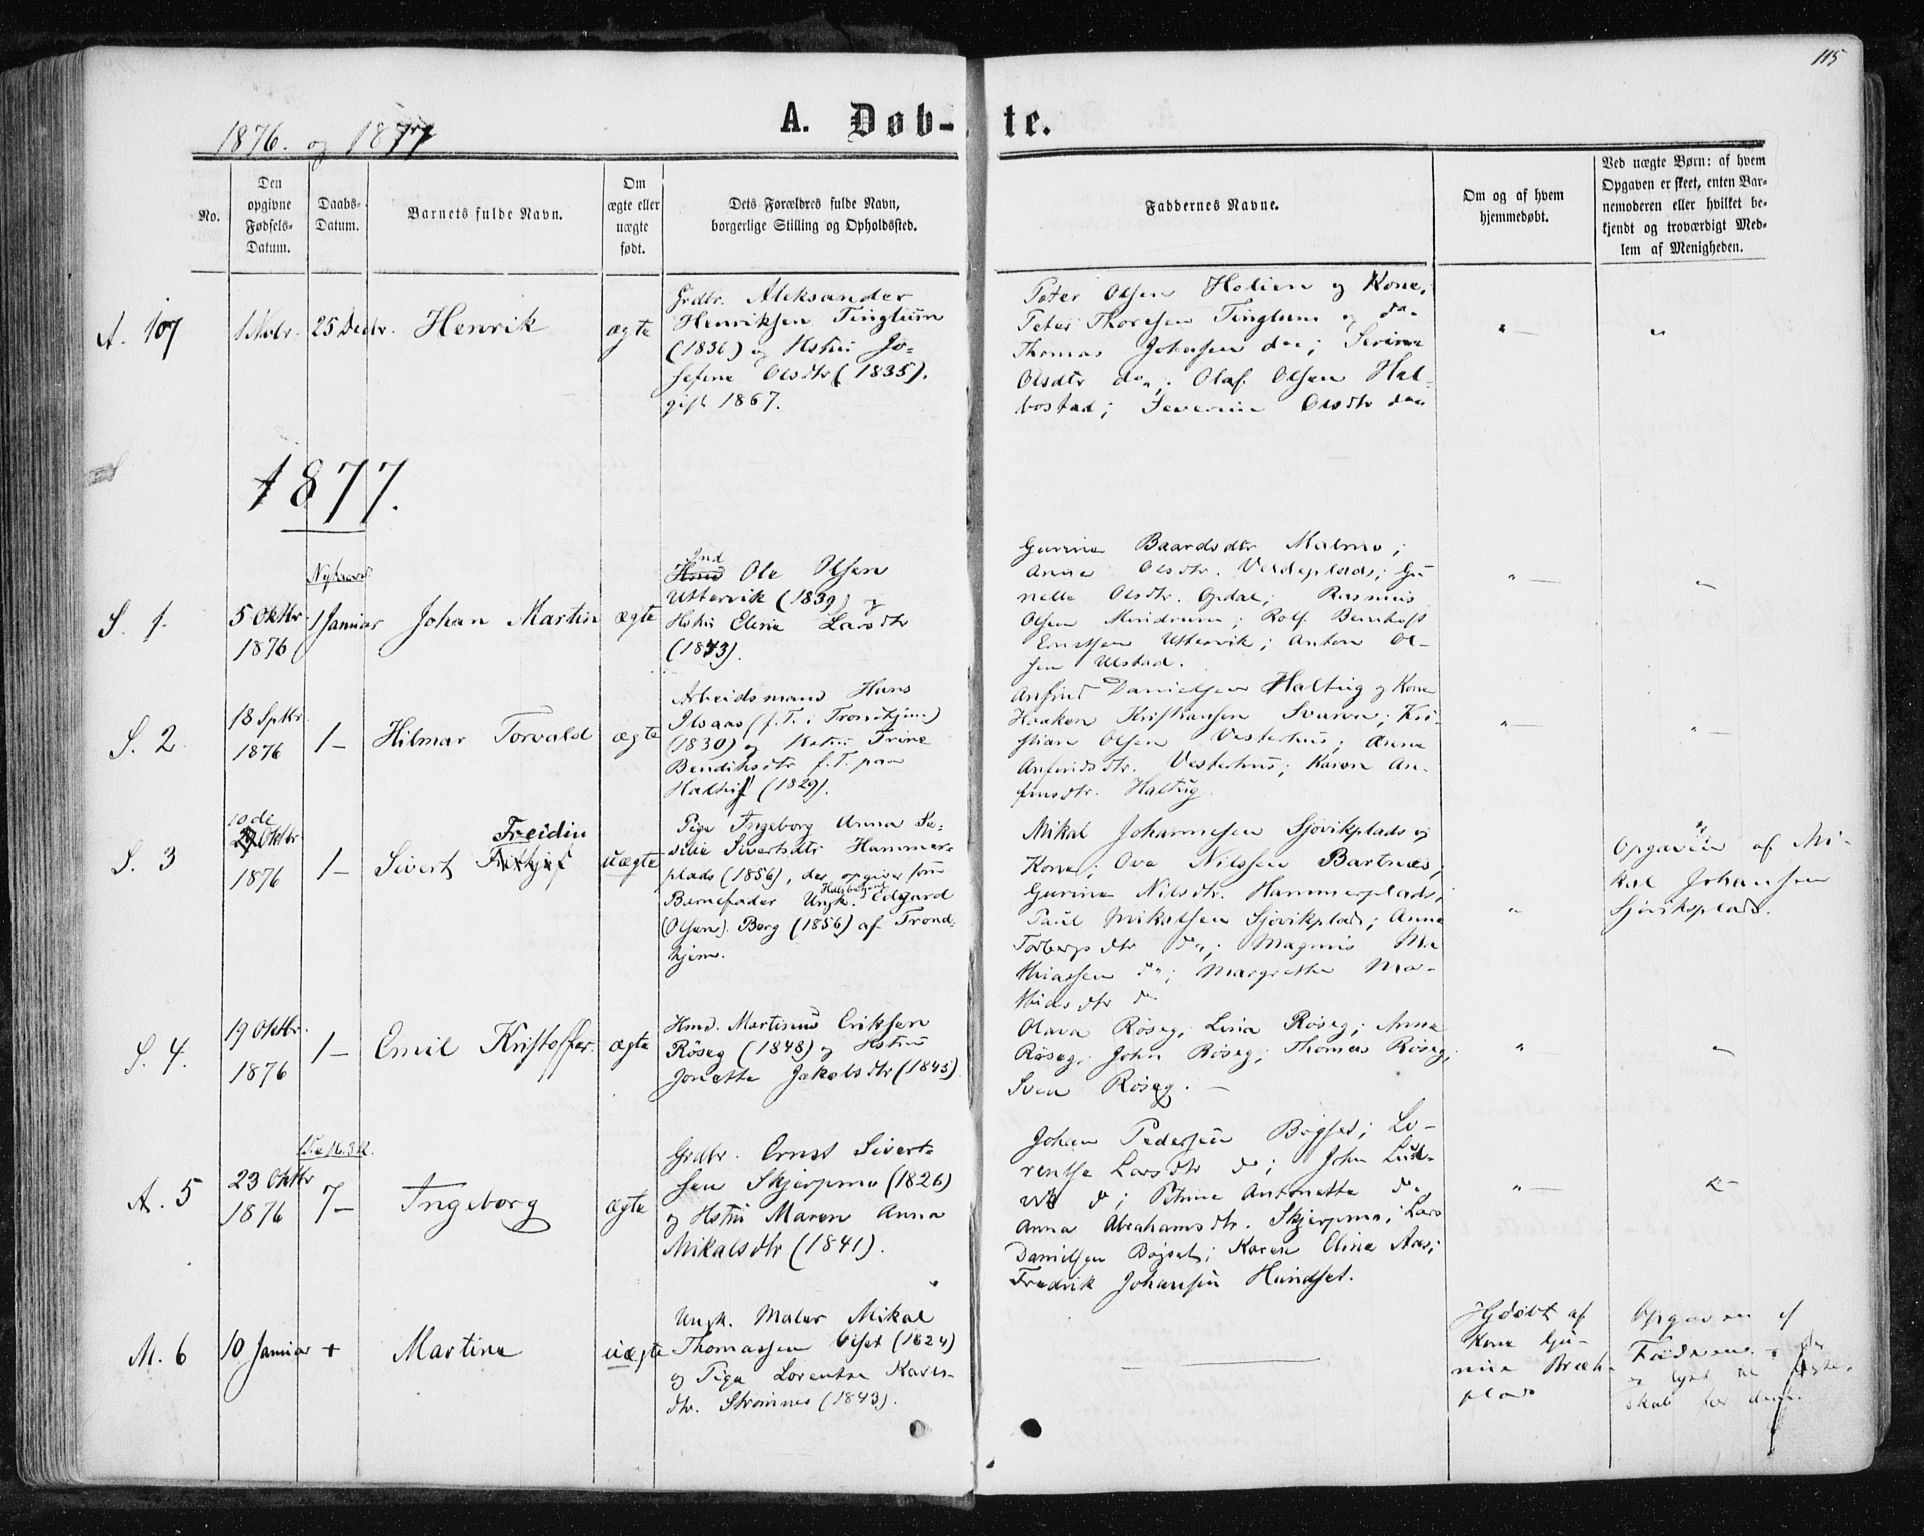 115
1876. og 1877
A. Døb- te.
No.
Den opgivne Fødsels-Datum.
Daabs-Datum.
Barnets fulde Navn.
Om ægte eller uægte født.
Dets Forældres fulde Navn, borgerlige Stilling og Opholdssted.
Faddernes Navne.
Om og af hvem hjemmedøbt.
Ved uægte Børn: af hvem Opgaven er skeet, enten Barnemoderen eller hvilket bekjendt og troværdigt Medlem af Menigheden.
A. 107
25 Decbr.
Henrik
ægte
Grdbr. Aleksander
Henriksen Tinglum
(1836) og Hstru Jo-
sefine Olsdtr (1835).
gift 1867.
Peter Olsen Holien og Kone;
Peter Thoresen Tinglum og do.
Thomas Johansen do; Serine
Olsdtr do; Olaf Olsen Hal-
bostad; Severine Olsdtr do
1877.
S. 1.
5 Oktbr
1876
1 Januar
Johan Martin
ægte
Ind
Ole Olsen
Uttervik (1839) og
Hstru Elene Larsdtr
(1843).
Gurine Baardsdtr Malmo;
Anna Olsdtr. Veldeplads; Gu-
nelle Olsdtr. Opdal; Rasmus
Olsen Mindrum; Rolf Bernhoft
Erntsen Uttervik; Anton Ol-
sen Ulstad.
S. 2
18 Sptbr.
1876
1 –
Hilmar Torvald
ægte
Arbeidsmand Hans
Ilsaas (f.T. i Trondhjem)
(1830) og Hstru Trine
Bendiksdtr f.T. paa
Haltug (1829).
Anfind Danielsen Haltug og Kone
Haaken Kristiansen Svarva; Kri-
stian Olsen Vesterhus; Anna
Anfindsdtr. Vesterhus; Karen An-
finsdtr. Haltug.
S. 3
10de
Oktbr
1876
1 –
Sivert Freidin
uægte
Pige Ingeborg Anna Se-
silie Sivertsdtr Hammer-
plads (1856), der opgiver som
Barnefader Ungk. Edgard
(Olsen) Berg (1856) af Trond-
hjem.
Mikal Johannesen Sjøvikplads og
Kone; Ove Nilssen Bartnes;
Gurine Nilsdtr. Hammerplads;
Paul Mikalsen Sjøvikplads; Anna
Torbergsdtr do; Magnus Ma-
thiassen do; Margrethe Ma-
thiasdtr do
Opgaven af Mi-
kal Johansen
Sjøviksplads.
S. 4.
19 Oktbr.
1876
1 –
Emil Kristoffer.
ægte
Hmd. Martinus Eriksen
Røseg (1848) og Hstru
Jonette Jakobsdtr (1843).
Olava Røseg, Lina Røseg; Anna
Røseg; John Røseg; Thomas Røseg;
Sven Røseg. –
A. 5
23 Oktbr
1876
7 –
Ingeborg
ægte
Grdbr. Ernst Sivert-
sen Skjerpmo (1826)
og Hstru Maren Anna
Mikalsdtr (1841).
Johan Pedersen Bøgset; Lo-
rentse Larsdtr do; John Lud-
do; Petrine Antonette do.
Anna Abrahamsdtr. Skjerpmo; Lars
Danielsen Bøgset; Karen Elina Aas;
Fredrik Johansen Hundset.
M. 6
10 Januar
+
Martine
uægte
Ungk. Maler Mikal
Thomassen Viset (1824)
og Pige Lorentse Kares-
dtr. Strømnes (1843).
Hjdøbt af
Kone Gu-
nilie Bræk-
plads
Opgaven af
Faderen
skab for dem.